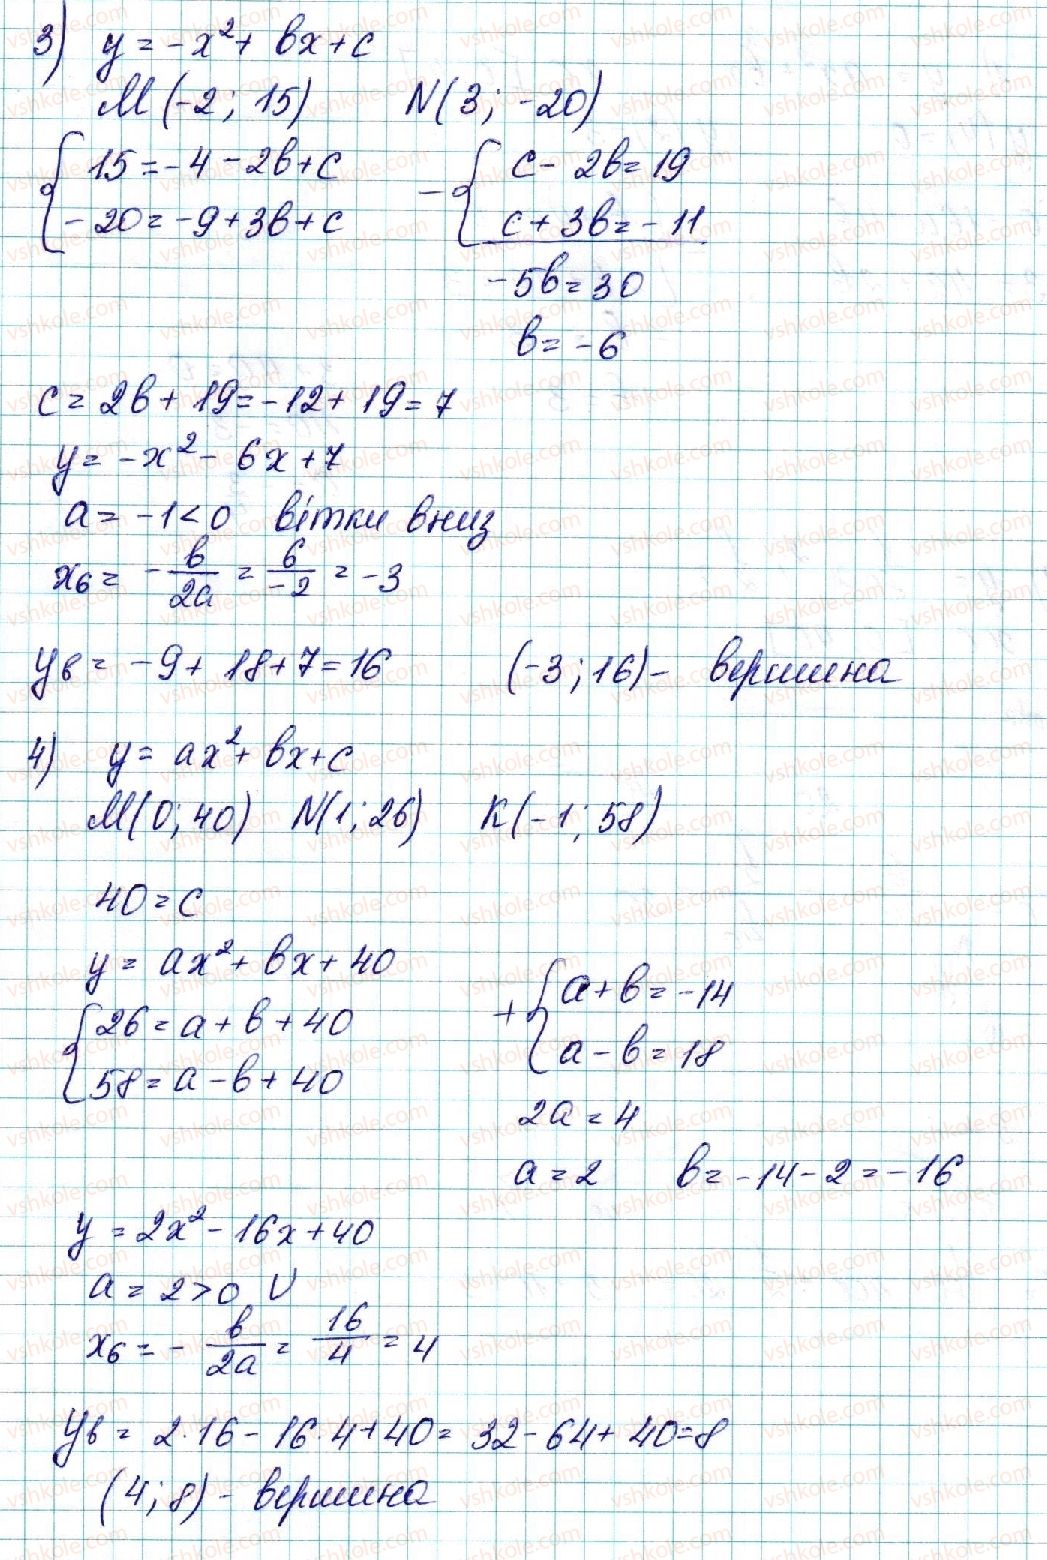 3) y = -x² + bx + c
M(-2; 15) N(3; -20)
{ 15 = -4 - 2b + c - { c - 2b = 19
{ -20 = -9 + 3b + c c + 3b = -11
-5b = 30
b = -6
c = 2b + 19 = -12 + 19 = 7
y = -x² - 6x + 7
a = -1 < 0 вітки вниз
xв = - b/2a = 6/-2 = -3
yв = -9 + 18 + 7 = 16 (-3; 16) - вершина
4) y = ax² + bx + c
M(0; 40) N(1; 26) K(-1; 58)
40 = c
y = ax² + bx + 40
{ 26 = a + b + 40 + { a + b = -14
{ 58 = a - b + 40 a - b = 18
2a = 4
a = 2 b = -14 - 2 = -16
y = 2x² - 16x + 40
a = 2 > 0 ∪
xв = - b/2a = 16/4 = 4
yв = 2·16 - 16·4 + 40 = 32 - 64 + 40 = 8
(4; 8) - вершина